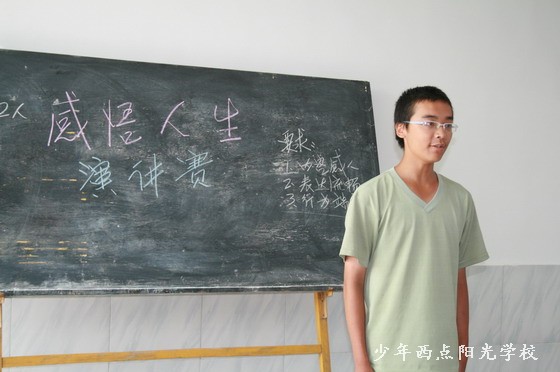 感悟人生
演讲赛
要求:
1.内容感人
2.表达流畅
行为
少年西点阳光学校